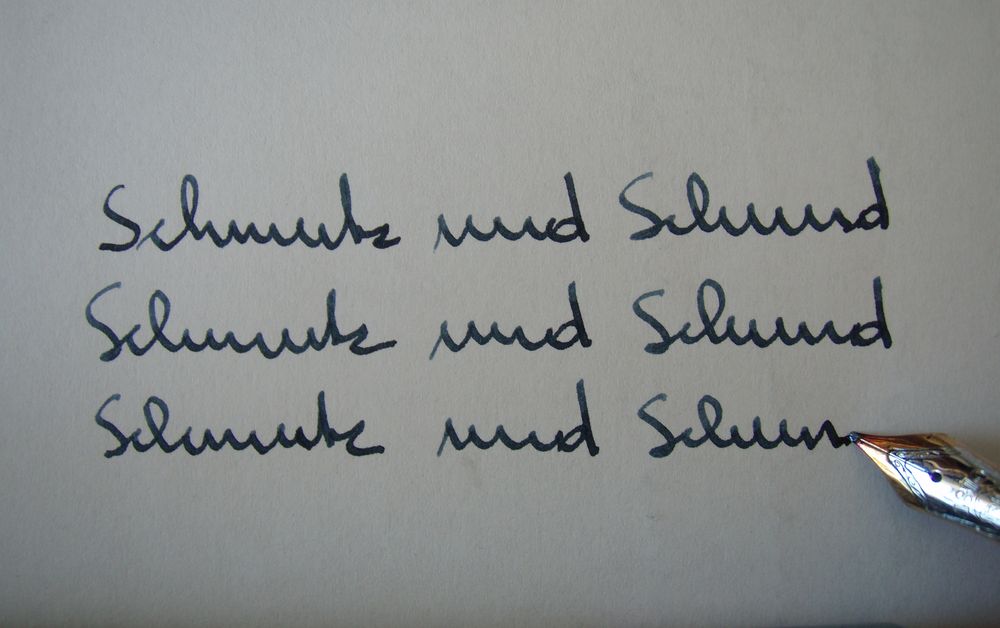 Schmutz und Schund
Schmutz und Schund
Schmutz und Schun